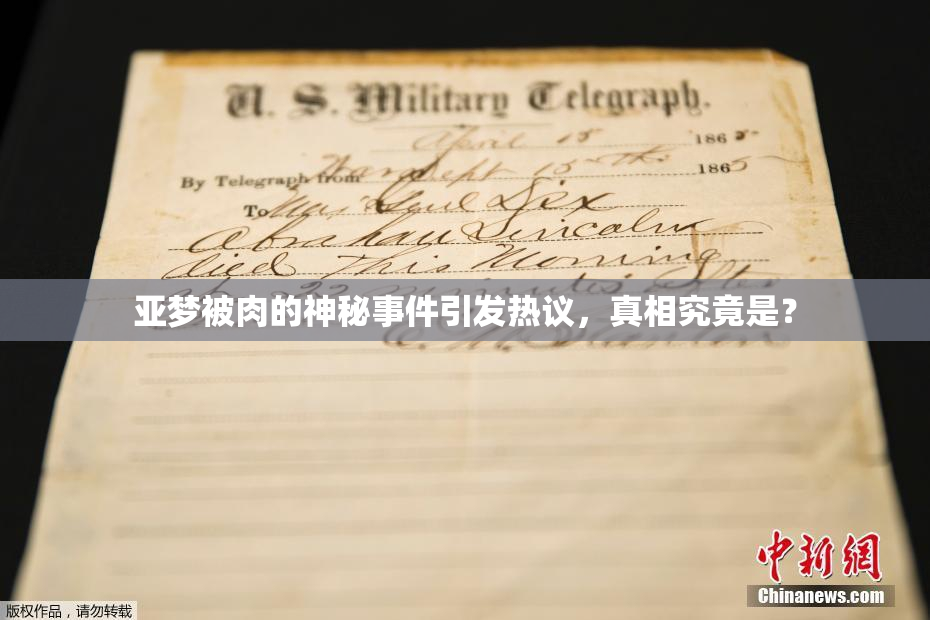 U. S. Military Telegraph.
April 15 1865
By Telegraph from War Dept 15th 1865
To Maj Genl Dix
Abraham Lincoln
died This Morning
22 minutes after
亚梦被肉的神秘事件引发热议，真相究竟是？
E. M. Stanton
中新网
Chinanews.com
版权作品，请勿转载